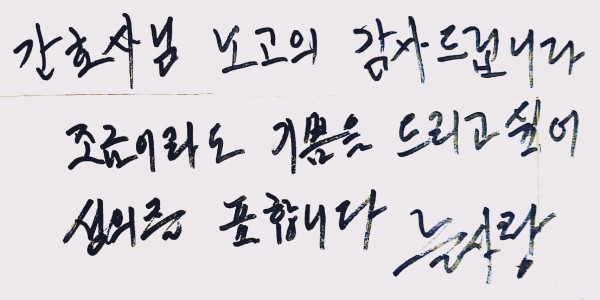 간호사님 노고의 감사드립니다
조금이라도 기쁨을 드리고싶어
섭의를 표합니다 늘사랑